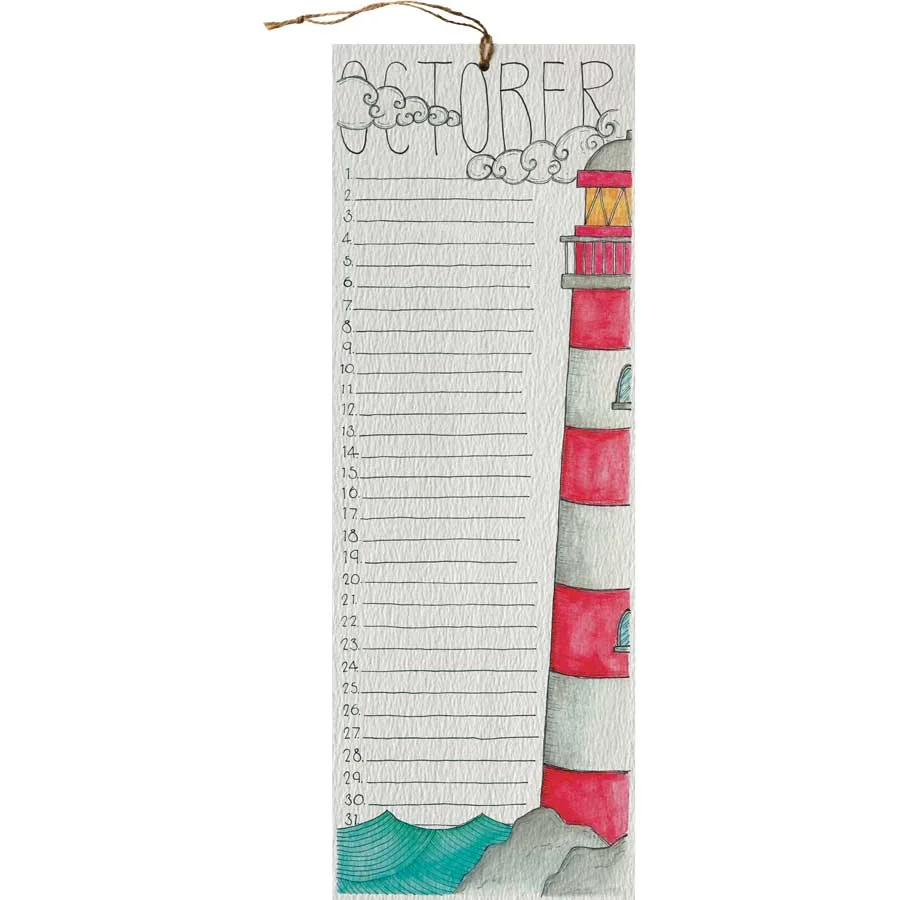 OCTOBER
1.
2.
3.
4.
5.
6.
7.
8.
9.
10.
11.
12.
13.
14.
15.
16.
17.
18.
19.
20.
21.
22.
23.
24.
25.
26.
27.
28.
29.
30.
31.